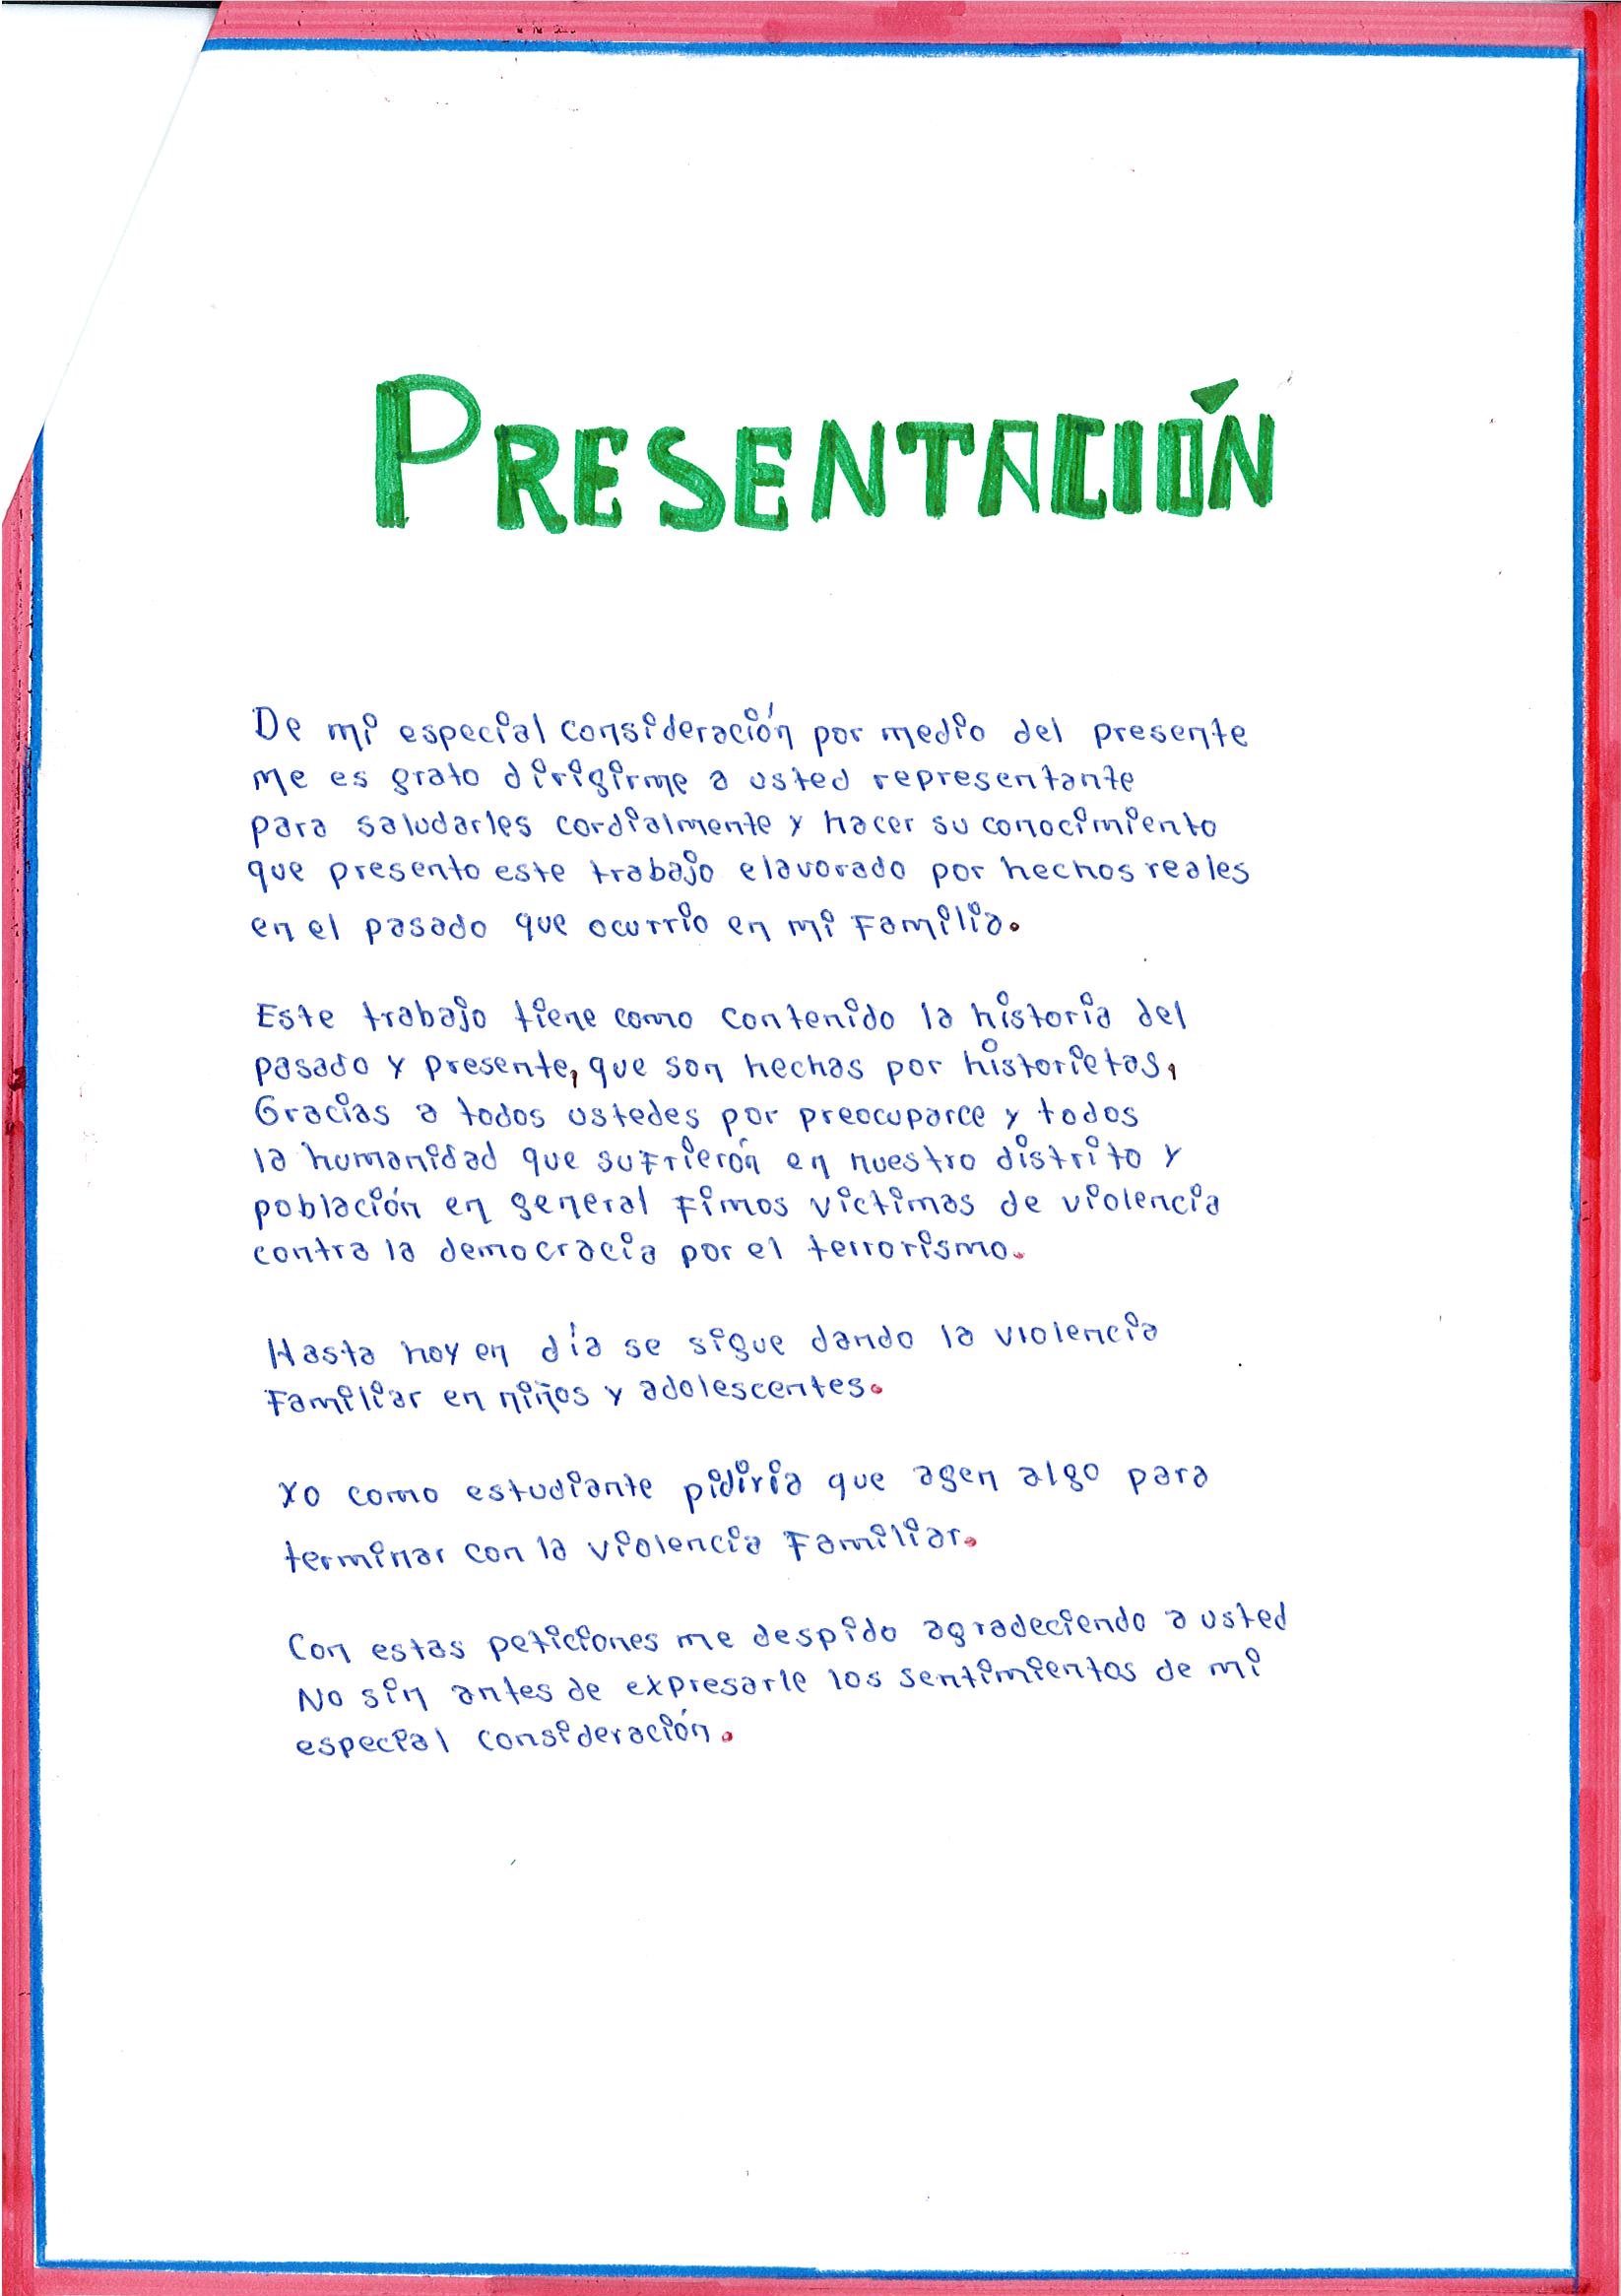 PRESENTACIÓN
De mi especial consideración por medio del presente
me es grato dirigirme a usted representante
para saludarles cordialmente y hacer su conocimiento
que presento este trabajo elavorado por hechos reales
en el pasado que ocurrio en mi Familia.
Este trabajo tiene como contenido la historia del
pasado y presente, que son hechas por historietas,
Gracias a todos ustedes por preocuparce y todos
la humanidad que sufrierón en nuestro distrito y
población en general Fimos victimas de violencia
contra la democracia por el terrorismo.
Hasta hoy en día se sigue dando la violencia
Familiar en niños y adolescentes.
Yo como estudiante pidiria que agen algo para
terminar con la violencia Familiar.
Con estas peticiones me despido agradeciendo a usted
No sin antes de expresarle los sentimientos de mi
especial consideración.